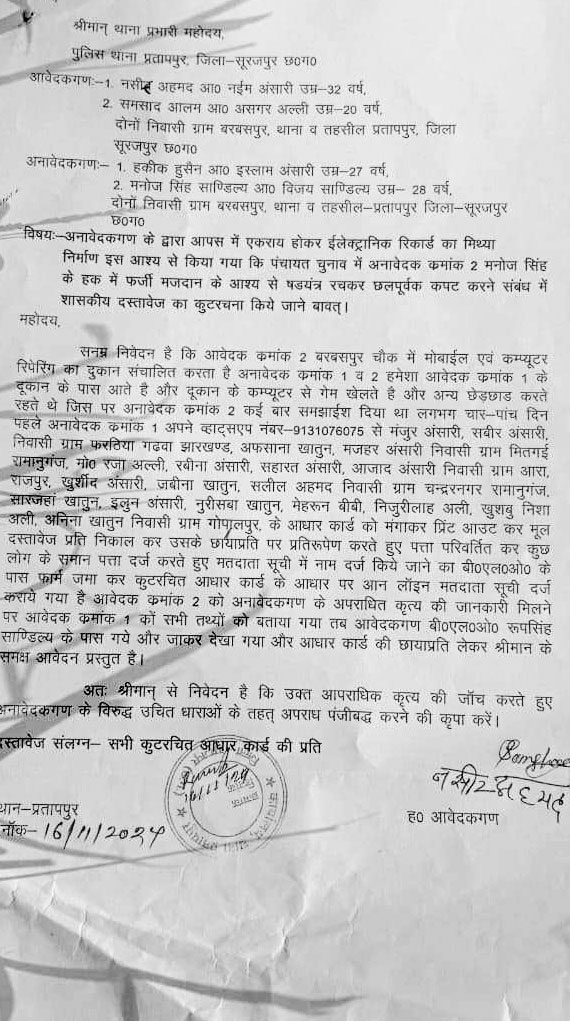 श्रीमान् थाना प्रभारी महोदय,
पुलिस थाना प्रतापपुर, जिला–सूरजपुर छ०ग०
आवेदकगण:–1. नसीर अहमद आ0 नईम अंसारी उम्र–32 वर्ष,
2. समसाद आलम आ0 असगर अल्ली उम्र–20 वर्ष,
दोनों निवासी ग्राम बरबसपुर, थाना व तहसील प्रतापपुर, जिला
सूरजपुर छ0ग0
अनावेदकगण:– 1. हकीक हुसैन आ0 इस्लाम अंसारी उम्र–27 वर्ष,
2. मनोज सिंह साण्डिल्य आ0 विजय साण्डिल्य उम्र– 28 वर्ष,
दोनों निवासी ग्राम बरबसपुर, थाना व तहसील–प्रतापपुर जिला–सूरजपुर
छ0ग0
विषय:–अनावेदकगण के द्वारा आपस में एकराय होकर ईलेक्ट्रानिक रिकार्ड का मिथ्या
निर्माण इस आश्य से किया गया कि पंचायत चुनाव में अनावेदक कमांक 2 मनोज सिंह
के हक में फर्जी मजदान के आश्य से षडयंत्र रचकर छलपूर्वक कपट करने संबंध में
शासकीय दस्तावेज का कुटरचना किये जाने बावत्।
महोदय,
सनम्र निवेदन है कि आवेदक कमांक 2 बरबसपुर चौक में मोबाईल एवं कम्प्यूटर
रिपेरिंग का दुकान संचालित करता है अनावेदक कमांक 1 व 2 हमेशा आवेदक कमांक 1 के
दूकान के पास आते है और दूकान के कम्प्यूटर से गेम खेलते है और अन्य छेड़छाड करते
रहते थे जिस पर अनावेदक कमांक 2 कई बार समझाईश दिया था लगभग चार–पांच दिन
पहले अनावेदक कमांक 1 अपने व्हाट्सएप नंबर–9131076075 से मंजुर अंसारी, सबीर अंसारी,
निवासी ग्राम फरठिया गढवा झारखण्ड, अफसाना खातुन, मजहर अंसारी निवासी ग्राम मितगई
रामानुगंज, मो0 रजा अल्ली, रबीना अंसारी, सहारत अंसारी, आजाद अंसारी निवासी ग्राम आरा,
राजपुर, खुर्शीद अंसारी, जबीना खातुन, सलील अहमद निवासी ग्राम चन्द्ररनगर रामानुगंज,
सारजहां खातुन, इलुन अंसारी, नुरीसबा खातुन, मेहरून बीबी, निजुरीलाह अली, खुशबु निशा
अली, अनिना खातुन निवासी ग्राम गोपालपुर, के आधार कार्ड को मंगाकर प्रिंट आउट कर मूल
दस्तावेज प्रति निकाल कर उसके छायाप्रति पर प्रतिरूपेण करते हुए पत्ता परिवर्तित कर कुछ
लोग के समान पत्ता दर्ज करते हुए मतदाता सूची में नाम दर्ज किये जाने का बी0एल0ओ0 के
पास फार्म जमा कर कुटरचित आधार कार्ड के आधार पर आन लॉइन मतदाता सूची दर्ज
कराये गया है आवेदक कमांक 2 को अनावेदकगण के अपराधित कृत्य की जानकारी मिलने
पर आवेदक कमांक 1 कों सभी तथ्यों को बताया गया तब आवेदकगण बी0एल0ओ0 रूपसिंह
साण्डिल्य के पास गये और जाकर देखा गया और आधार कार्ड की छायाप्रति लेकर श्रीमान के
समक्ष आवेदन प्रस्तुत है।
अतः श्रीमान् से निवेदन है कि उक्त आपराधिक कृत्य की जॉच करते हुए
अनावेदकगण के विरुद्ध उचित धाराओं के तहत् अपराध पंजीबद्ध करने की कृपा करें।
दस्तावेज संलग्न– सभी कुटरचित आधार कार्ड की प्रति
थान–प्रतापपुर
नॉक– 16/11/2024
नसीर अहमद
ह0 आवेदकगण